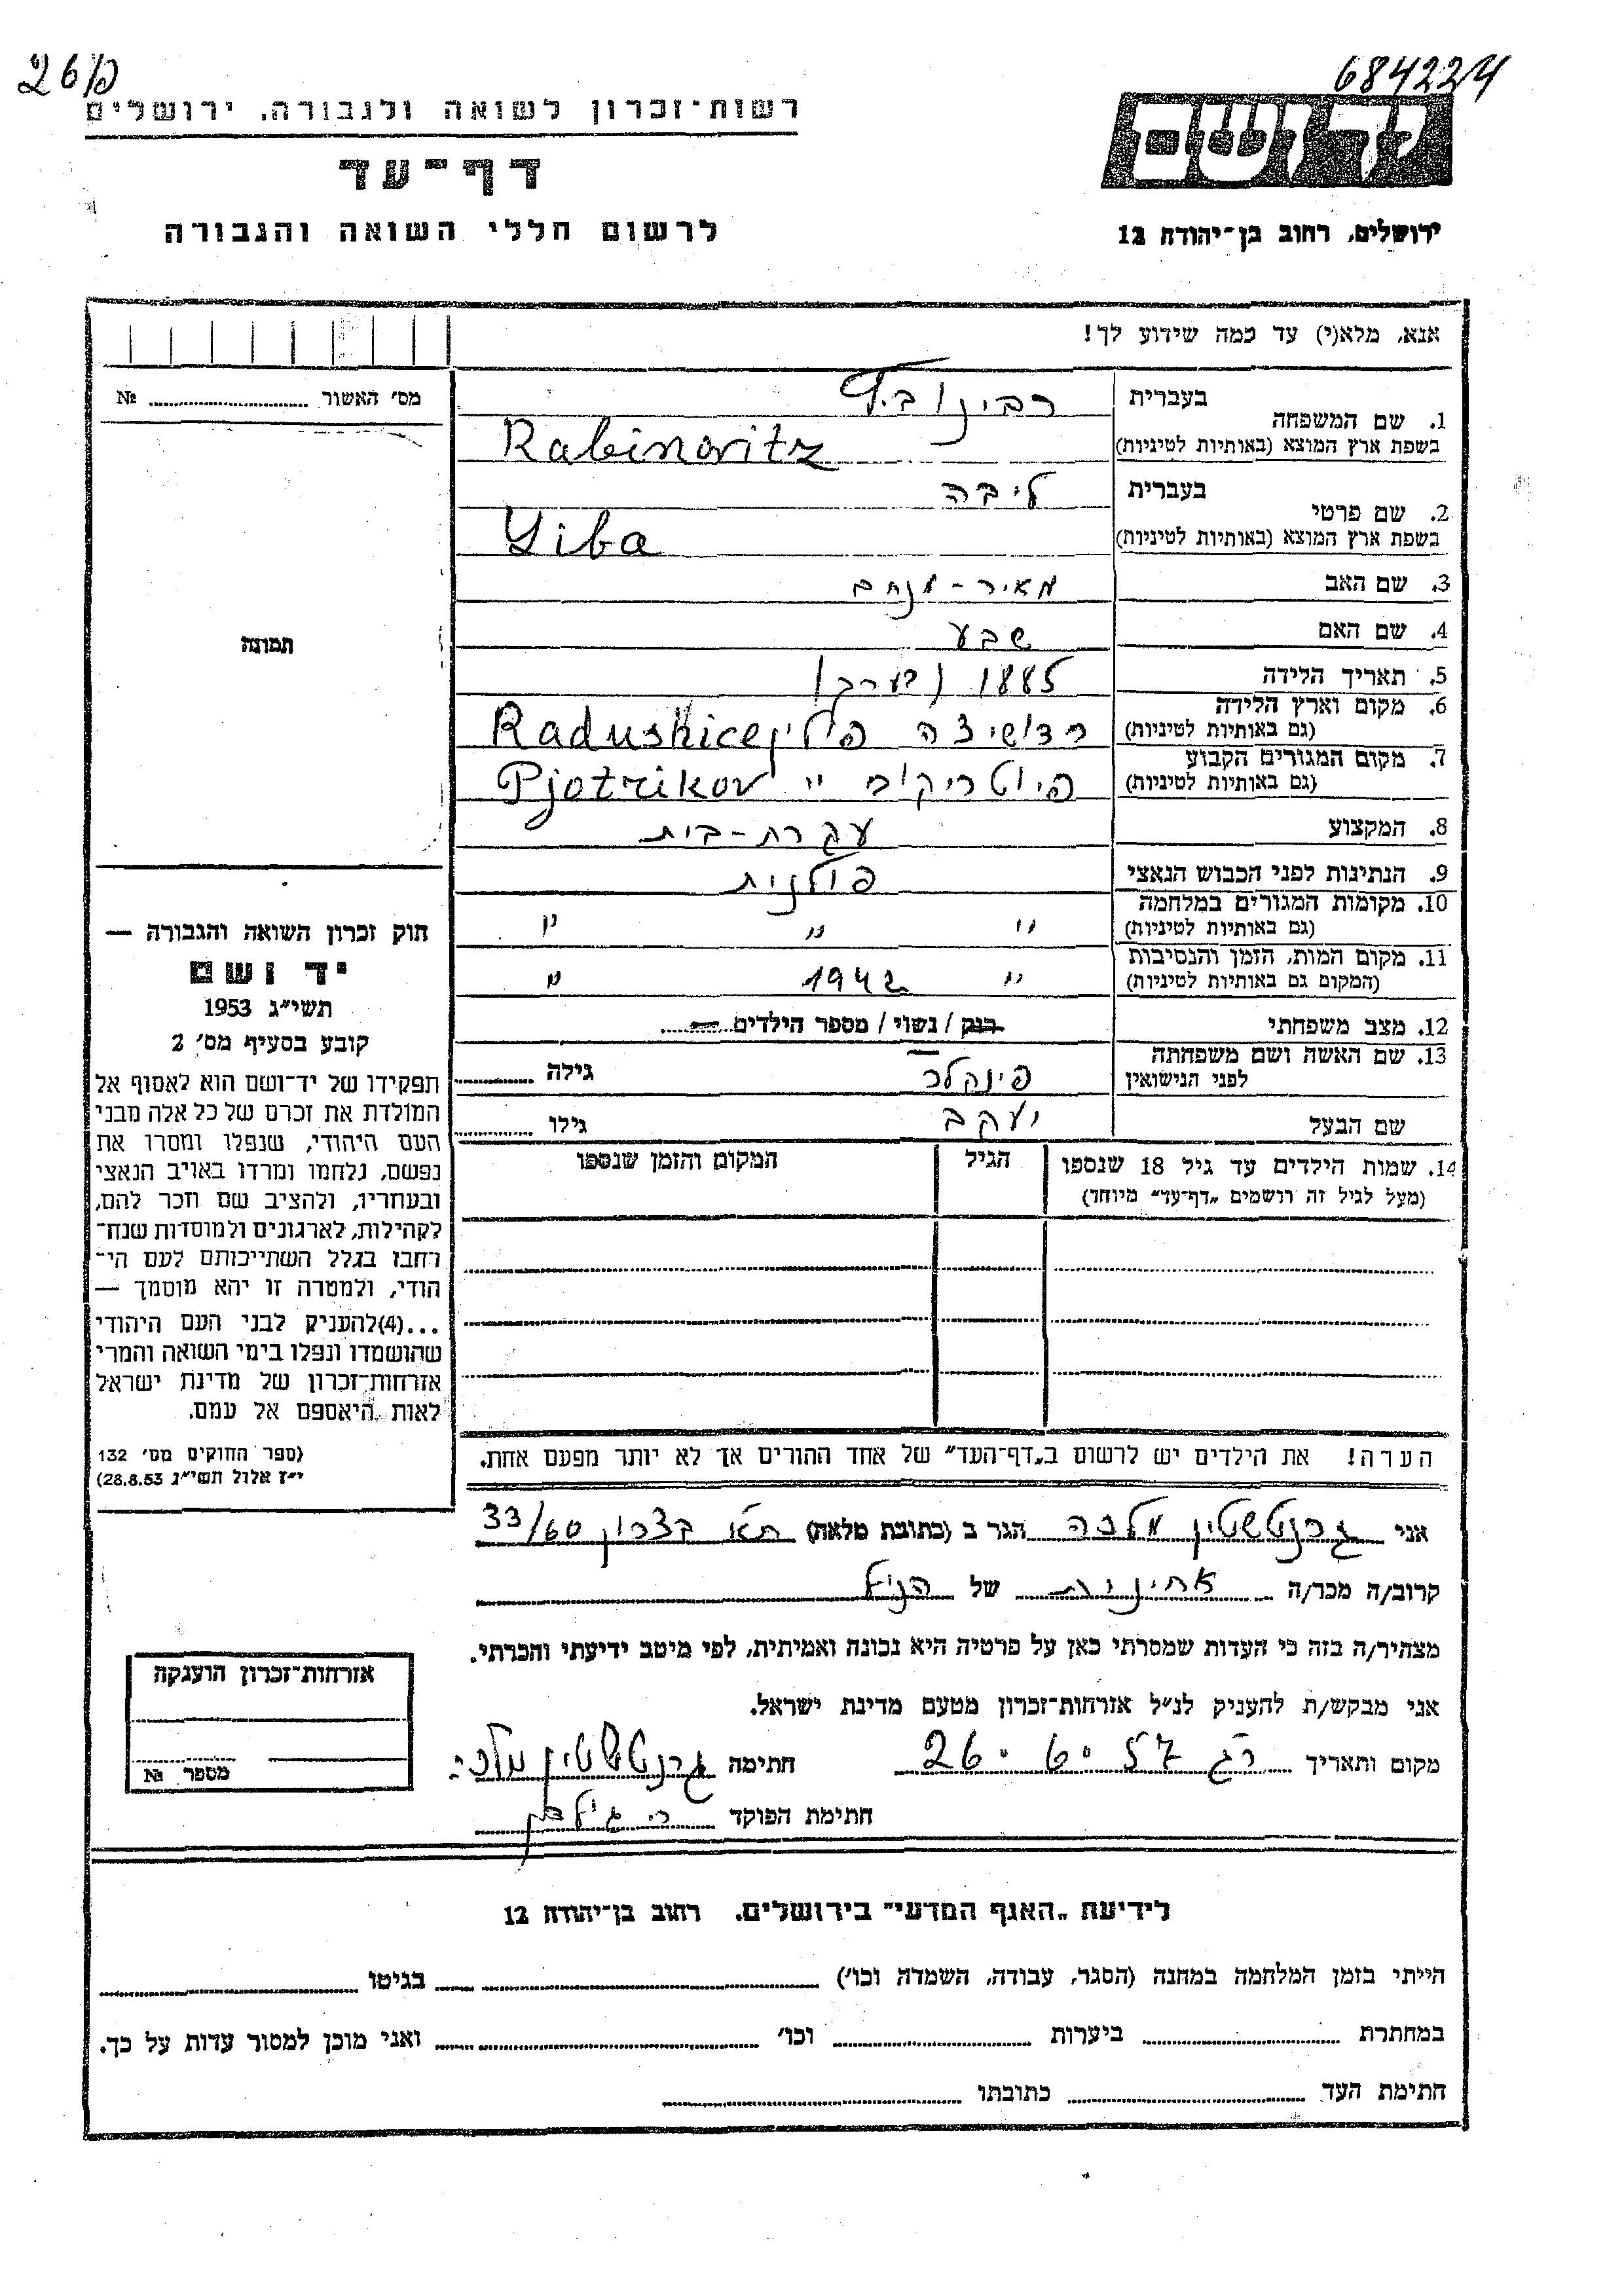 684224
26פ
רשות־זכרון לשואה ולגבורה, ירושלים
דף־עד
לרשום חללי השואה והגבורה
יד ושם
ירושלים, רחוב בן־יהודה 12
אנא, מלא(י) עד כמה שידוע לך!
מס׳ האשור № 
1. שם המשפחה
בעברית רבינוביץ
בשפת ארץ המוצא (באותיות לטיניות) Rabinovitz
2. שם פרטי
בעברית ליבה
בשפת ארץ המוצא (באותיות לטיניות) Liba
3. שם האב מאיר-מנחם
4. שם האם שבע
5. תאריך הלידה 1885 (בערך)
6. מקום וארץ הלידה (גם באותיות לטיניות) רדושיצה פולין Radushice
7. מקום המגורים הקבוע (גם באותיות לטיניות) פיוטריקוב " Pjotrikov
8. המקצוע עקרת-בית
9. הנתינות לפני הכבוש הנאצי פולנית
10. מקומות המגורים במלחמה (גם באותיות לטיניות) " " "
11. מקום המות, הזמן והנסיבות (המקום גם באותיות לטיניות) " 1942 "
12. מצב משפחתי רווק / נשוי / מספר הילדים
13. שם האשה ושם משפחתה לפני הנישואין פינקלר גילה
שם הבעל יעקב גילו
14. שמות הילדים עד גיל 18 שנספו (מעל לגיל זה רושמים „דף־עד״ מיוחד)
הגיל
המקום והזמן שנספו
הערה! את הילדים יש לרשום ב„דף־העד״ של אחד ההורים אך לא יותר מפעם אחת.
תמונה
חוק זכרון השואה והגבורה —
יד ושם
תשי״ג 1953
קובע בסעיף מס׳ 2
תפקידו של יד־ושם הוא לאסוף אל
המולדת את זכרם של כל אלה מבני
העם היהודי, שנפלו ומסרו את
נפשם, נלחמו ומרדו באויב הנאצי
ובעוזריו, ולהציב שם וזכר להם,
לקהילות, לארגונים ולמוסדות שנח־
רבו בגלל השתייכותם לעם הי־
הודי, ולמטרה זו יהא מוסמך —
...(4)להעניק לבני העם היהודי
שהושמדו ונפלו בימי השואה והמרי
אזרחות־זכרון של מדינת ישראל
לאות היאספם אל עמם.
(ספר החוקים מס׳ 132
י״ז אלול תשי״ג 28.8.53)
אני גרנטשטין מלכה הגר ב (כתובת מלאה) ת"א בצרון 33/60
קרוב/ה מכר/ה אחינית של הנ"ל
מצהיר/ה בזה כי העדות שמסרתי כאן על פרטיה היא נכונה ואמיתית, לפי מיטב ידיעתי והכרתי.
אני מבקש/ת להעניק לנ״ל אזרחות־זכרון מטעם מדינת ישראל.
מקום ותאריך ר"ג 26.6.57 חתימה גרנטשטין מלכה
חתימת הפוקד
אזרחות־זכרון הוענקה
מספר №
לידיעת „האגף המדעי״ בירושלים. רחוב בן־יהודה 12
הייתי בזמן המלחמה במחנה (הסגר, עבודה, השמדה וכו׳) בגיטו
במחתרת ביערות וכו׳ ואני מוכן למסור עדות על כך.
חתימת העד כתובתו